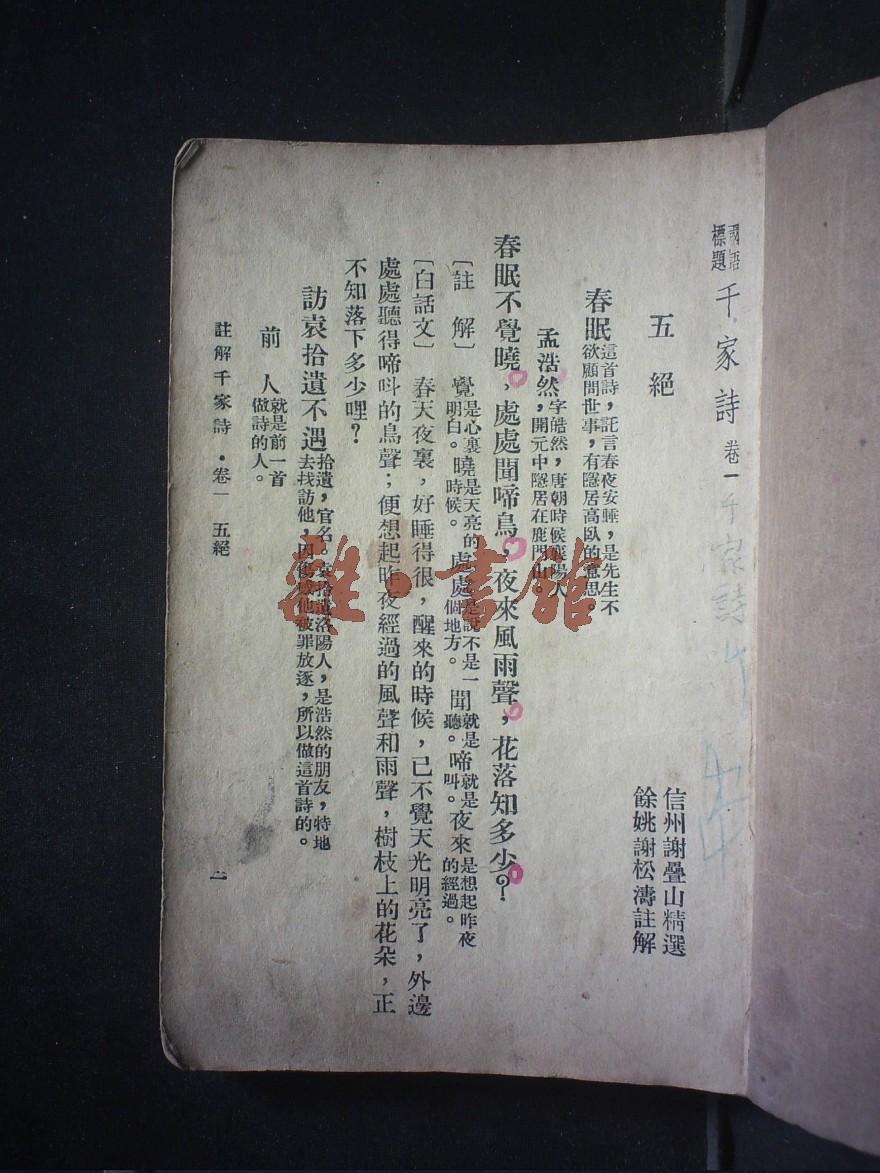 國語
標題
千家詩 卷一
千家詩
五絕
信州謝疊山精選
餘姚謝松濤註解
春眠
這首詩，託言春夜安睡，是先生不
欲顧問世事，有隱居高臥的意思。
孟浩然，
字皓然，唐朝時候襄陽人
開元中隱居在鹿門山。
春眠不覺曉，處處聞啼鳥，夜來風雨聲，花落知多少？
〔註解〕 覺是心裏明白。曉是天亮的時候。處處是說不是一個地方。聞就是聽。啼就是叫。夜來是想起昨夜的經過。
〔白話文〕 春天夜裏，好睡得很，醒來的時候，已不覺天光明亮了，外邊
處處聽得啼呌的鳥聲；便想起昨夜經過的風聲和雨聲，樹枝上的花朵，正
不知落下多少哩？
訪袁拾遺不遇
拾遺，官名。袁拾遺洛陽人，是浩然的朋友，特地
去找訪他，因傷感他被罪放逐，所以做這首詩的。
前人
就是前一首
做詩的人。
註解千家詩・卷一 五絕 一
雜・書館